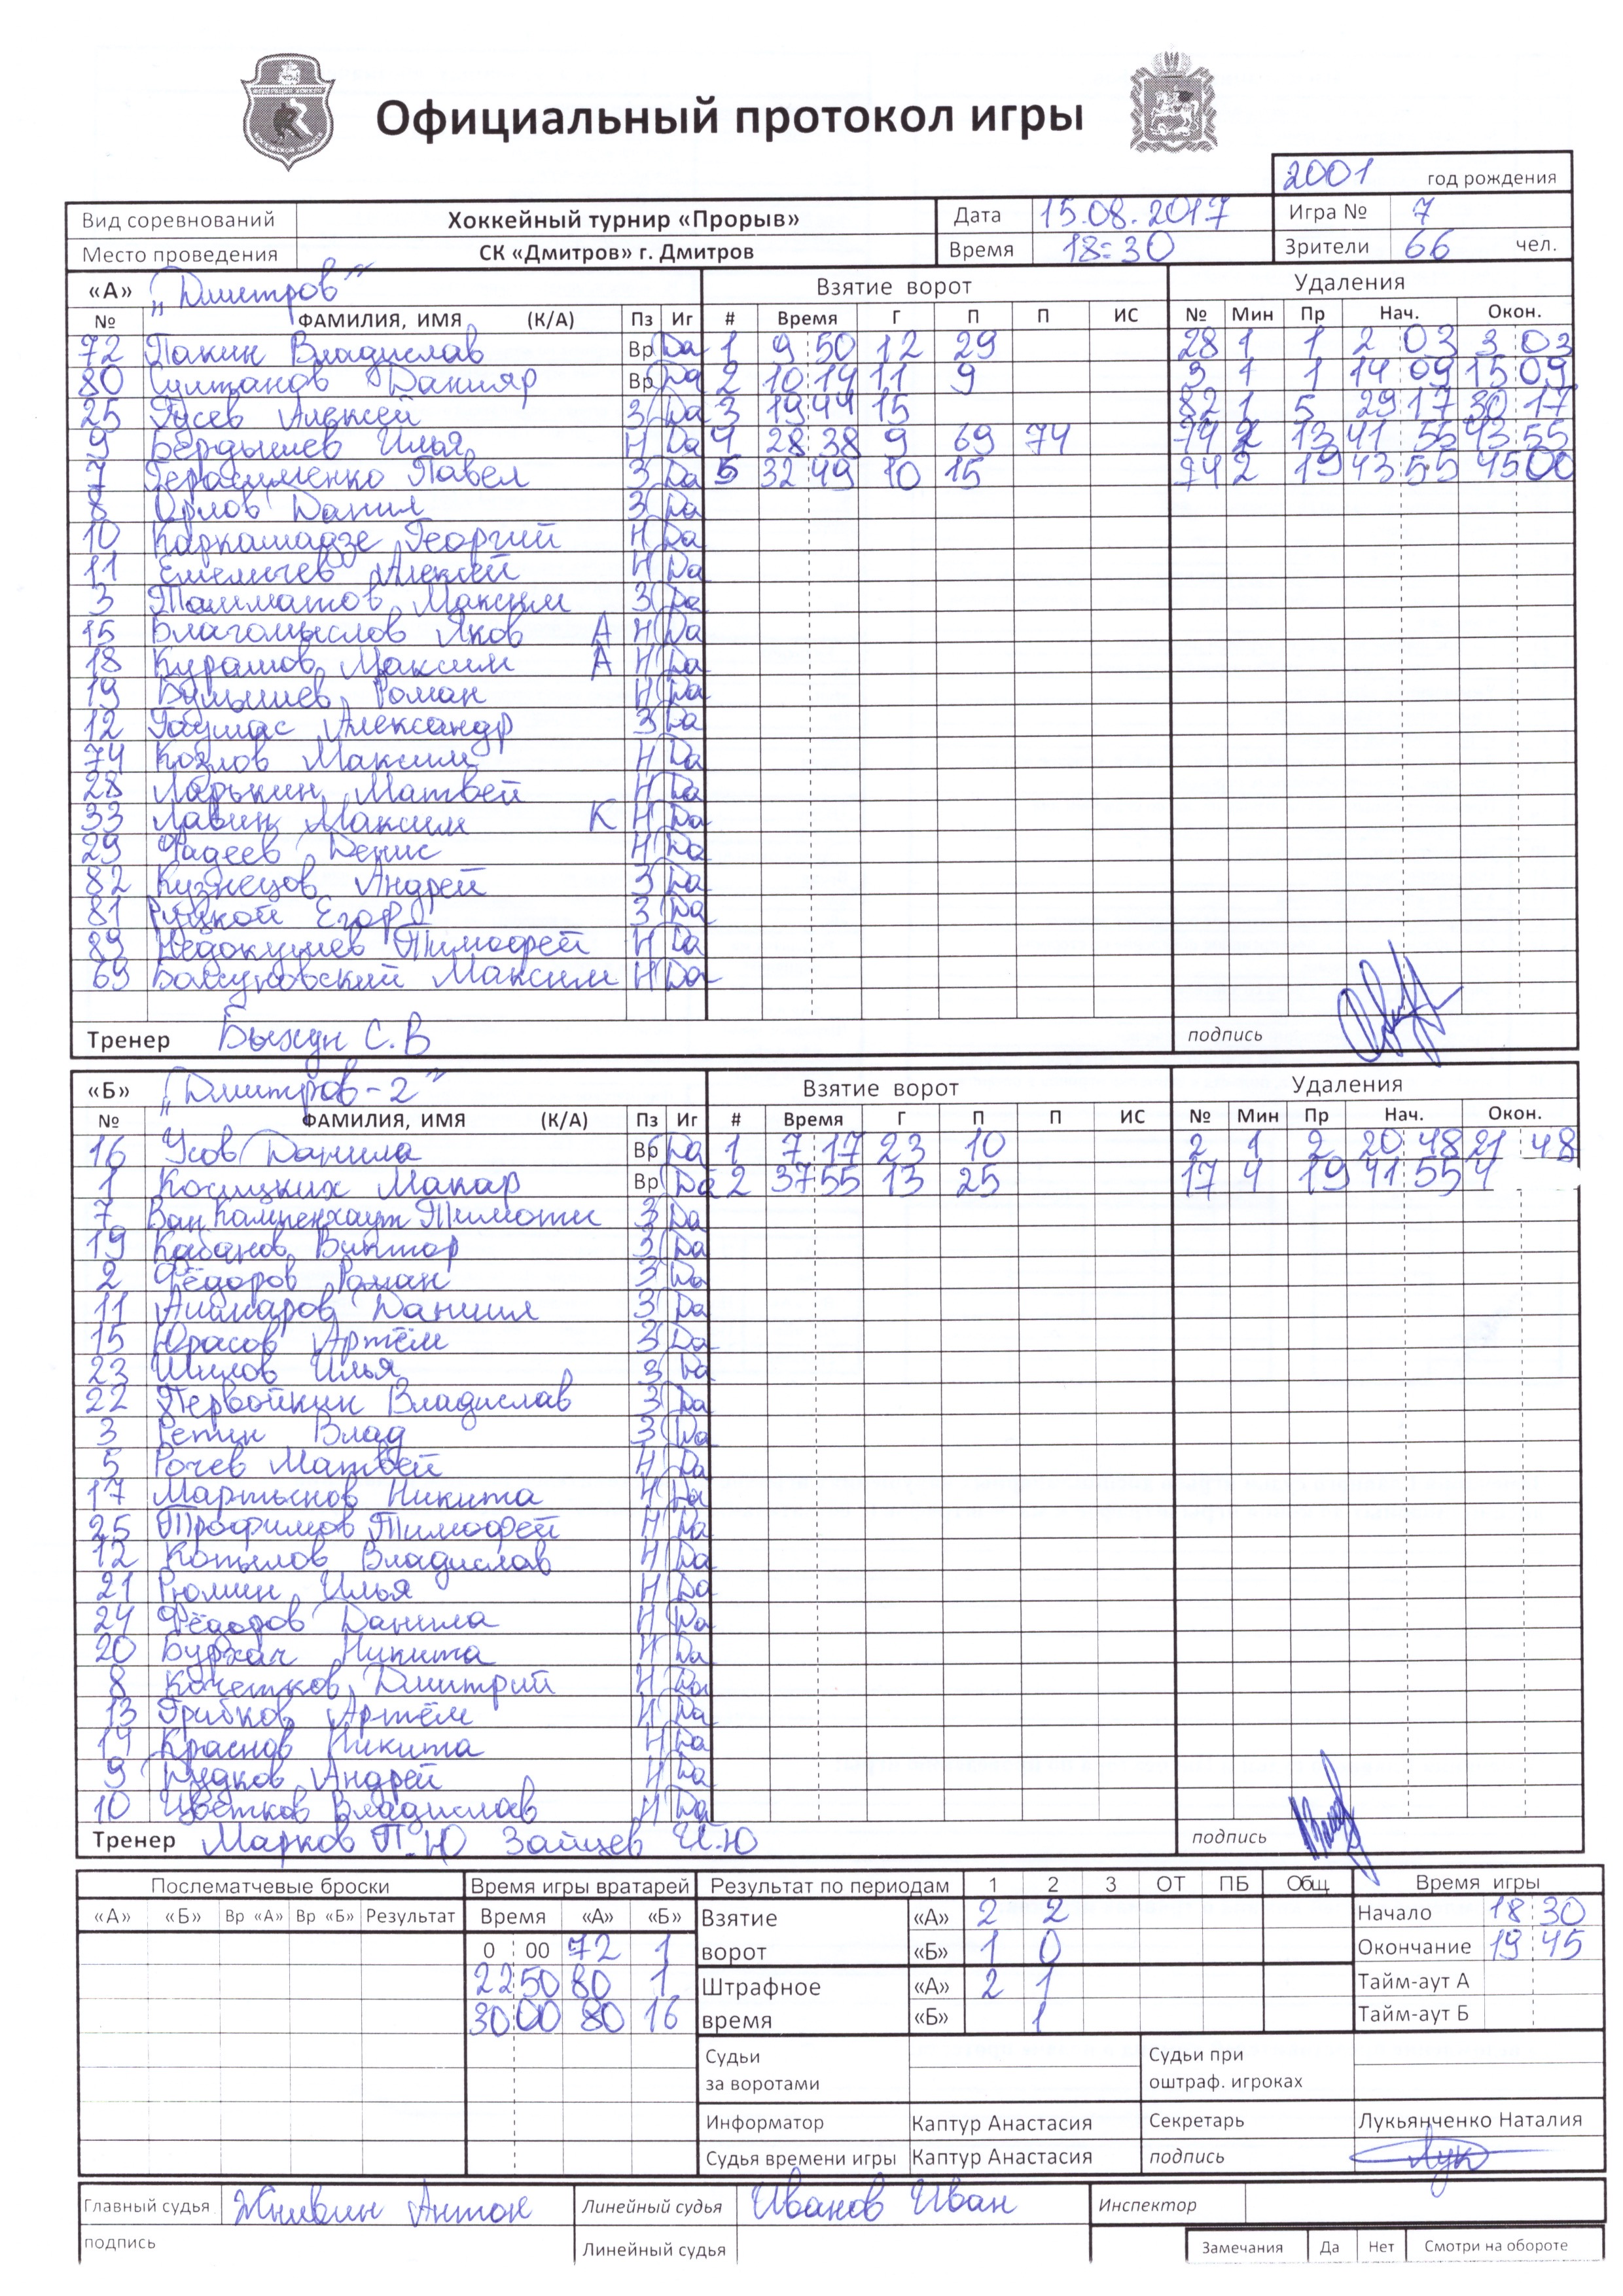 Официальный протокол игры
2001 год рождения
Вид соревнований Хоккейный турнир «Прорыв» Дата 15.08.2017 Игра № 7
Место проведения СК «Дмитров» г. Дмитров Время 18:30 Зрители 66 чел.
«А» "Дмитров" Взятие ворот Удаления
№ ФАМИЛИЯ, ИМЯ (К/А) Пз Иг # Время Г П П ИС № Мин Пр Нач. Окон.
72 Пакин Владислав Вр Да 1 9 50 12 29 28 1 1 2 03 3 03
80 Султанов Данияр Вр Да 2 10 14 11 9 3 1 1 14 09 15 09
25 Гусев Алексей З Да 3 19 44 15 82 1 5 29 17 30 17
9 Бердышев Илья Н Да 4 28 38 9 69 74 74 2 13 41 55 43 55
7 Герасименко Павел З Да 5 32 49 10 15 74 2 19 43 55 45 00
8 Орлов Данил З Да
10 Каркашадзе Георгий Н Да
11 Емеличев Алексей Н Да
3 Ташматов Максим З Да
15 Благомыслов Яков А Н Да
18 Курашов Максим А Н Да
19 Роман Н Да
12 Александр З Да
74 Козлов Максим Н Да
28 Ларькин Матвей Н Да
33 Лавин Максим К Н Да
29 Фадеев Денис Н Да
82 Кузнецов Андрей З Да
81 Руцкой Егор З Да
89 Недокушев Тимофей Н Да
69 Максим Н Да
Тренер Быхун С.В подпись
«Б» "Дмитров-2" Взятие ворот Удаления
№ ФАМИЛИЯ, ИМЯ (К/А) Пз Иг # Время Г П П ИС № Мин Пр Нач. Окон.
16 Усов Данила Вр Да 1 7 17 23 10 2 1 2 20 48 21 48
1 Косицких Макар Вр Да 2 37 55 13 25 17 4 19 41 55 4
7 Ван Кампенхаут Тимоти З Да
19 Кабанов Виктор З Да
2 Фёдоров Роман З Да
11 Ашмаров Даниил З Да
15 Юрасов Артём З Да
23 Шилов Илья З Да
22 Первойкин Владислав З Да
3 Репин Влад З Да
5 Рочев Матвей Н Да
17 Мартынов Никита Н Да
25 Трофимов Тимофей Н Да
12 Копылов Владислав Н Да
21 Рюмин Илья Н Да
24 Фёдоров Данила Н Да
20 Бурхач Никита Н Да
8 Кочетков Дмитрий Н Да
13 Грибков Артём Н Да
14 Краснов Никита Н Да
9 Рудков Андрей Н Да
10 Цветков Владислав Н Да
Тренер Марков П.Ю Зайцев И.Ю подпись
Послематчевые броски Время игры вратарей Результат по периодам 1 2 3 ОТ ПБ Общ. Время игры
«А» «Б» Вр «А» Вр «Б» Результат Время «А» «Б» Взятие ворот «А» 2 2 Начало 18 30
0 00 72 1 «Б» 1 0 Окончание 19 45
22 50 80 1 Штрафное время «А» 2 1 Тайм-аут А
30 00 80 16 «Б» 1 Тайм-аут Б
Судьи за воротами Судьи при оштраф. игроках
Информатор Каптур Анастасия Секретарь Лукьянченко Наталия
Судья времени игры Каптур Анастасия подпись Лук
Главный судья Антон Линейный судья Иванов Иван Инспектор
подпись Линейный судья Замечания Да Нет Смотри на обороте